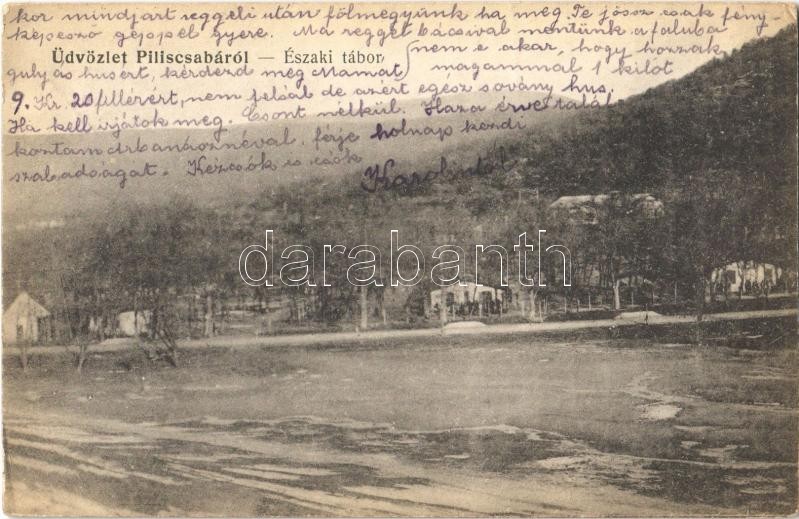 kor mindjárt reggeli után fölmegyünk ha meg. Te jössz csak fény-
képező géppel gyere. Ma reggel bácsival mentünk a faluba
Üdvözlet Piliscsabáról — Északi tábor
nem e akar, hogy hozzak
gulyás husért, kérdezd meg Mamát
magammal 1 kilót
9. Kr. 20 fillérért, nem felsál de azért egész sovány hus.
Ha kell irjátok meg. Csont nélkül. Haza érve talál
koztam néval, férje holnap kezdi
szabadságát. Kézcsók és csók
Karolintól
darabanth